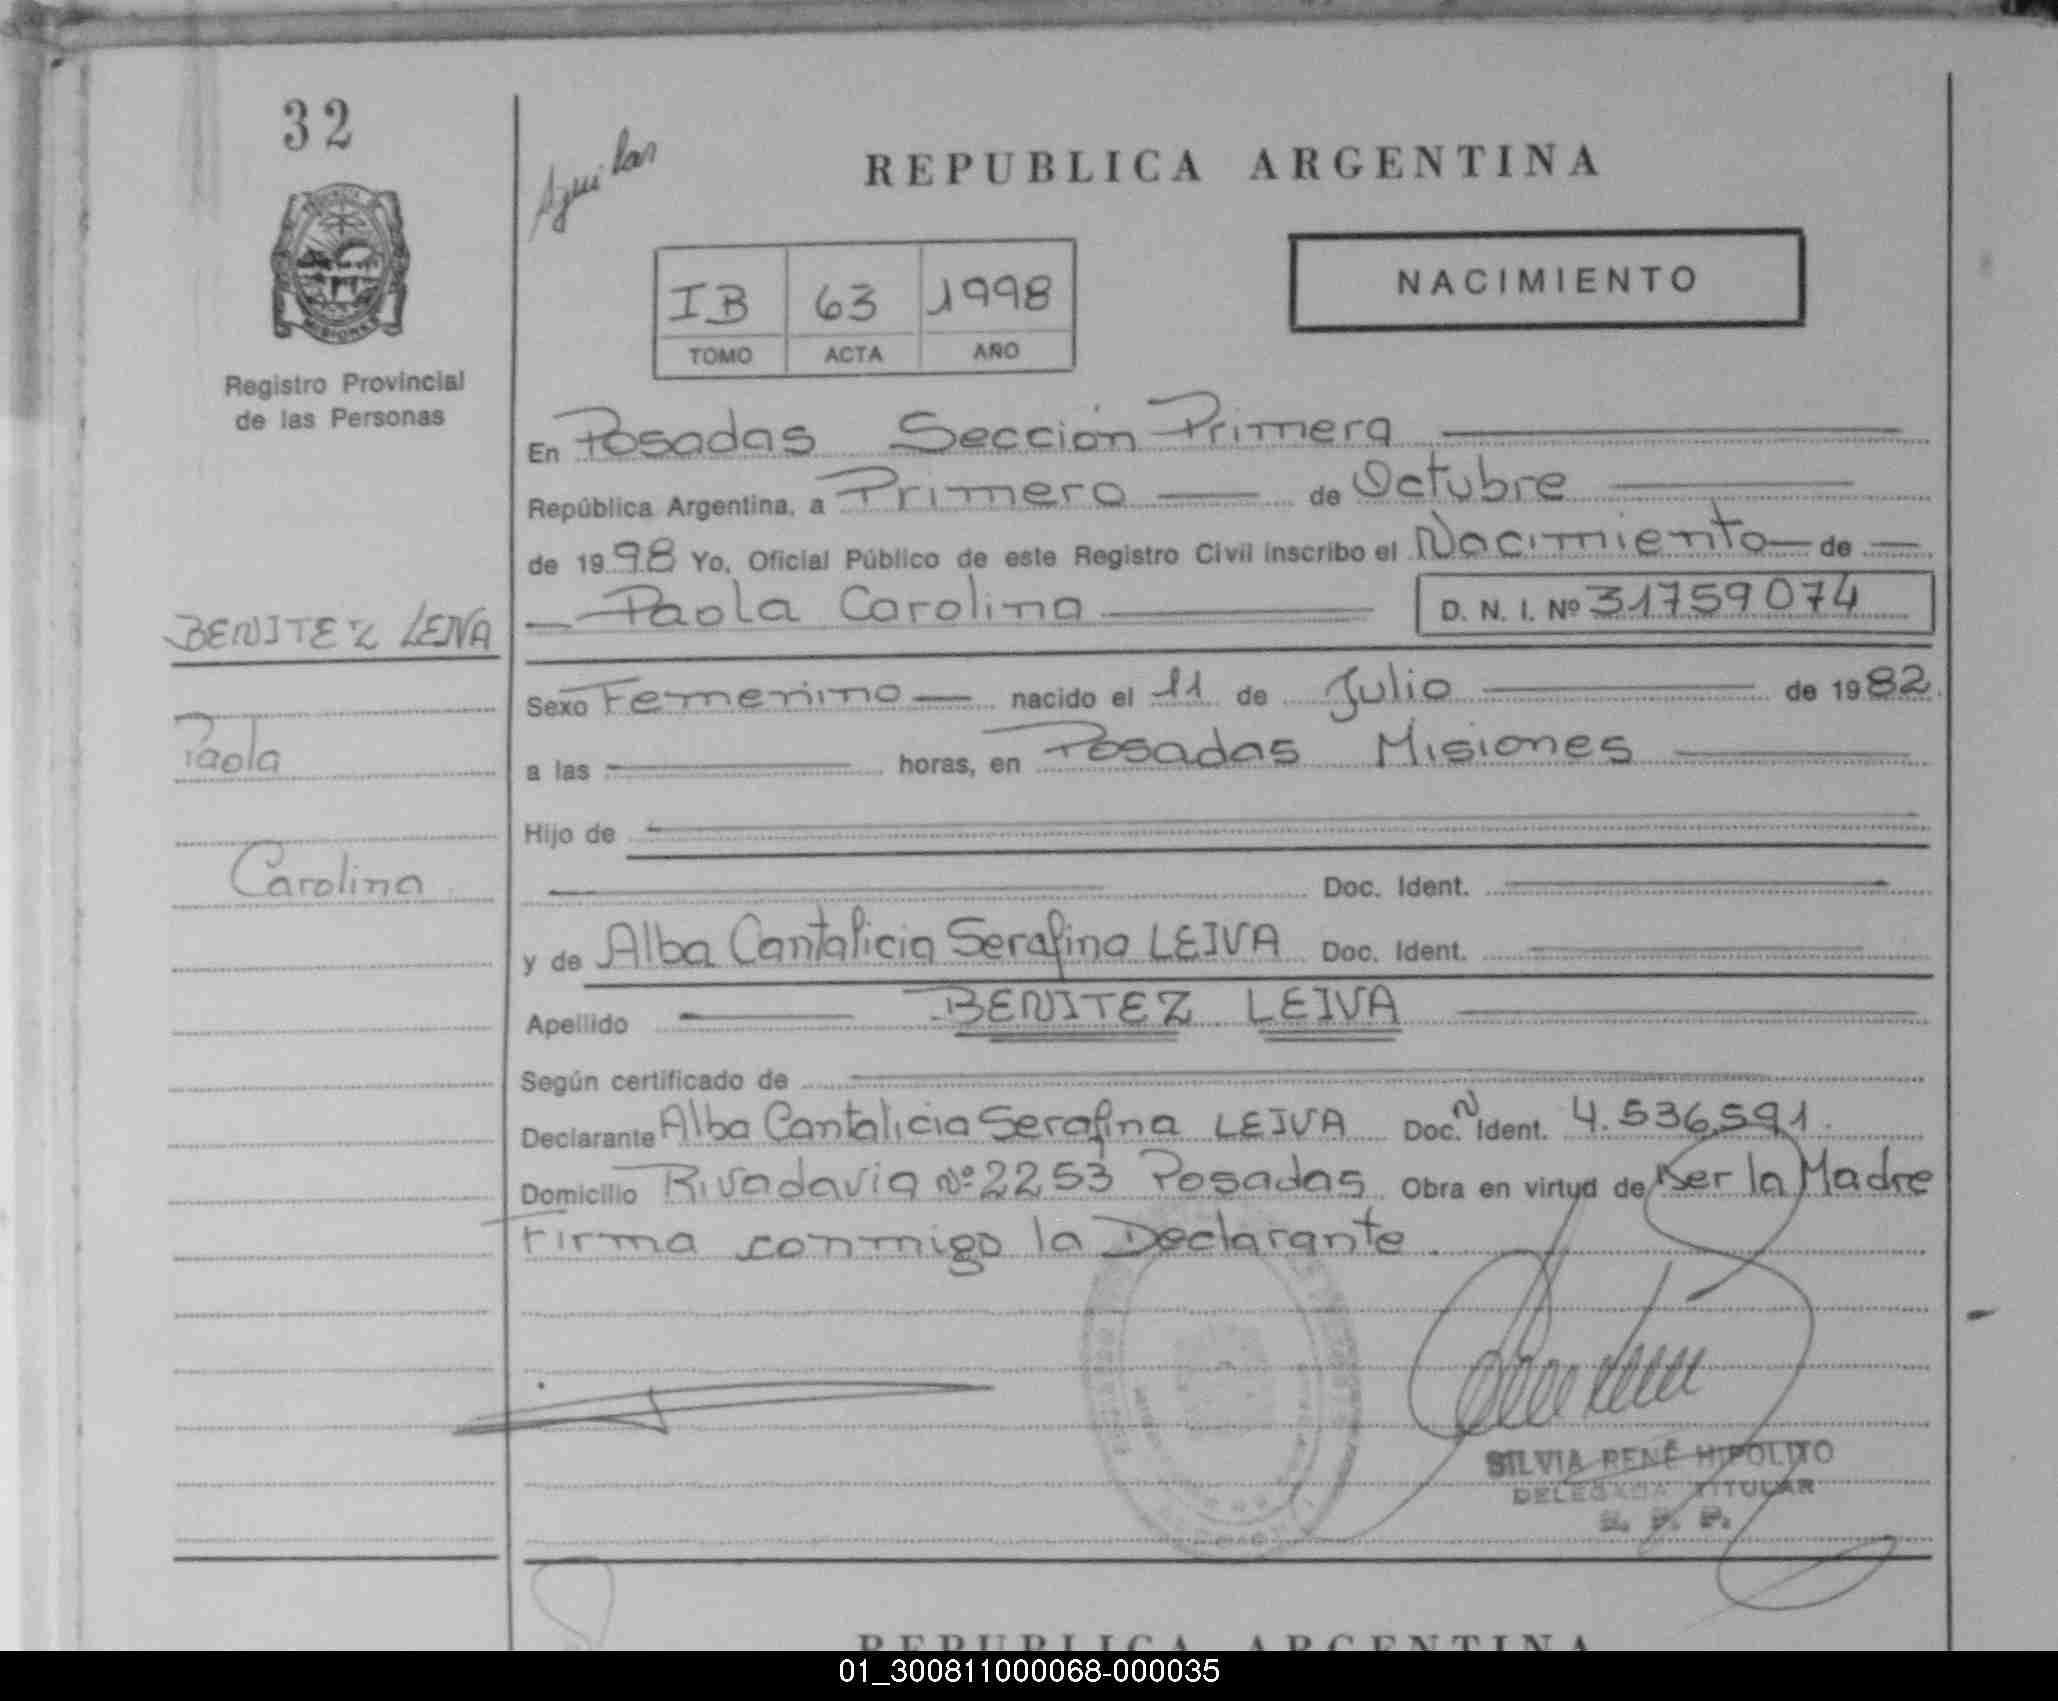 32
Aguilar
REPUBLICA ARGENTINA
IB 63 1998
TOMO ACTA AÑO
NACIMIENTO
MISIONES
Registro Provincial
de las Personas
En Posadas Sección Primera
República Argentina, a Primero de Octubre
de 1998 Yo, Oficial Público de este Registro Civil inscribo el Nacimiento de
Paola Carolina D. N. I. Nº 31759074
BENITEZ LEIVA
Paola
Carolina
Sexo Femenino nacido el 11 de Julio de 1982.
a las horas, en Posadas Misiones
Hijo de
Doc. Ident.
y de Alba Cantalicia Serafina LEIVA Doc. Ident.
Apellido BENITEZ LEIVA
Según certificado de
Declarante Alba Cantalicia Serafina LEIVA Doc. N Ident. 4.536.591.
Domicilio Rivadavia Nº 2253 Posadas Obra en virtud de ser la Madre
Firma conmigo la Declarante.
SILVIA RENÉ HIPOLITO
DELEGADA TITULAR
R. P. P.
REPUBLICA ARGENTINA
01_300811000068-000035